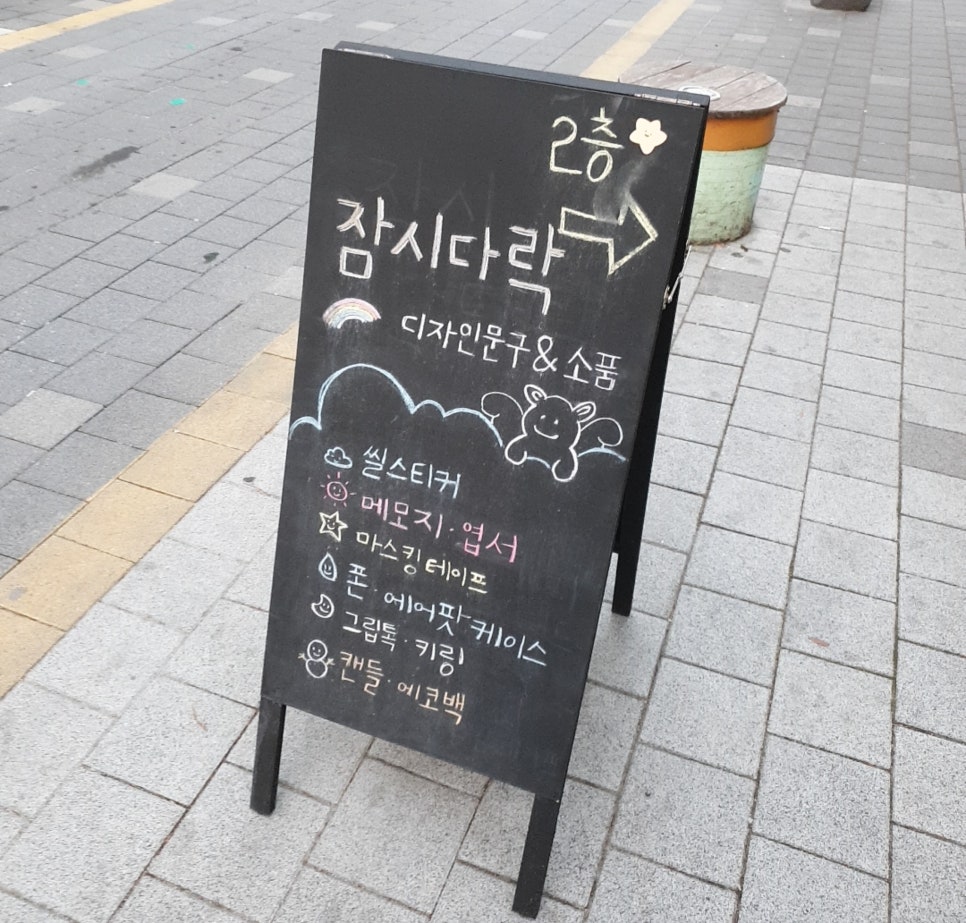 2층
잠시다락
디자인문구 & 소품
씰스티커
메모지·엽서
마스킹테이프
폰·에어팟케이스
그립톡·키링
캔들·에코백